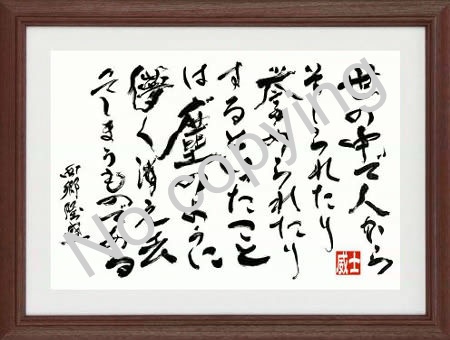 世の中で人から
そしられたり
誉められたり
するといったこと
は塵のように
儚く消え去
ってしまうものである
西郷隆盛
士威
No copying